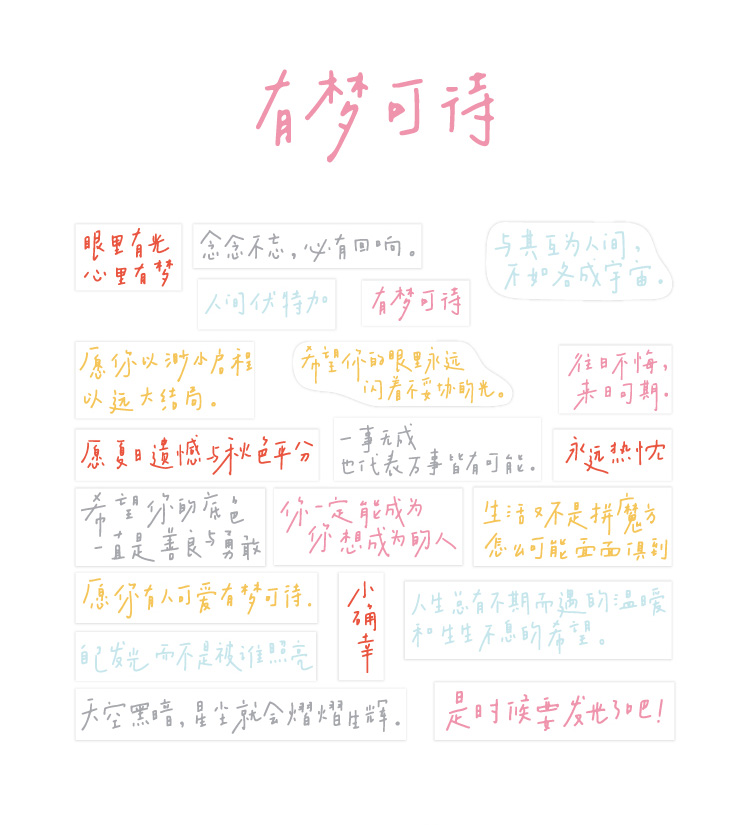 有梦可待
眼里有光
心里有梦
念念不忘，必有回响。
与其互为人间，
不如各成宇宙。
人间伏特加
有梦可待
愿你以渺小启程
以远大结局。
希望你的眼里永远
闪着不妥协的光。
往日不悔，
来日可期.
愿夏日遗憾与秋色平分
一事无成
也代表万事皆有可能.
永远热忱
希望你的底色
一直是善良与勇敢
你一定能成为
你想成为的人
生活又不是拼魔方
怎么可能面面俱到
愿你有人可爱有梦可待.
小确幸
人生总有不期而遇的温暖
和生生不息的希望。
自己发光而不是被谁照亮
天空黑暗，星尘就会熠熠生辉.
是时候要发光了吧！